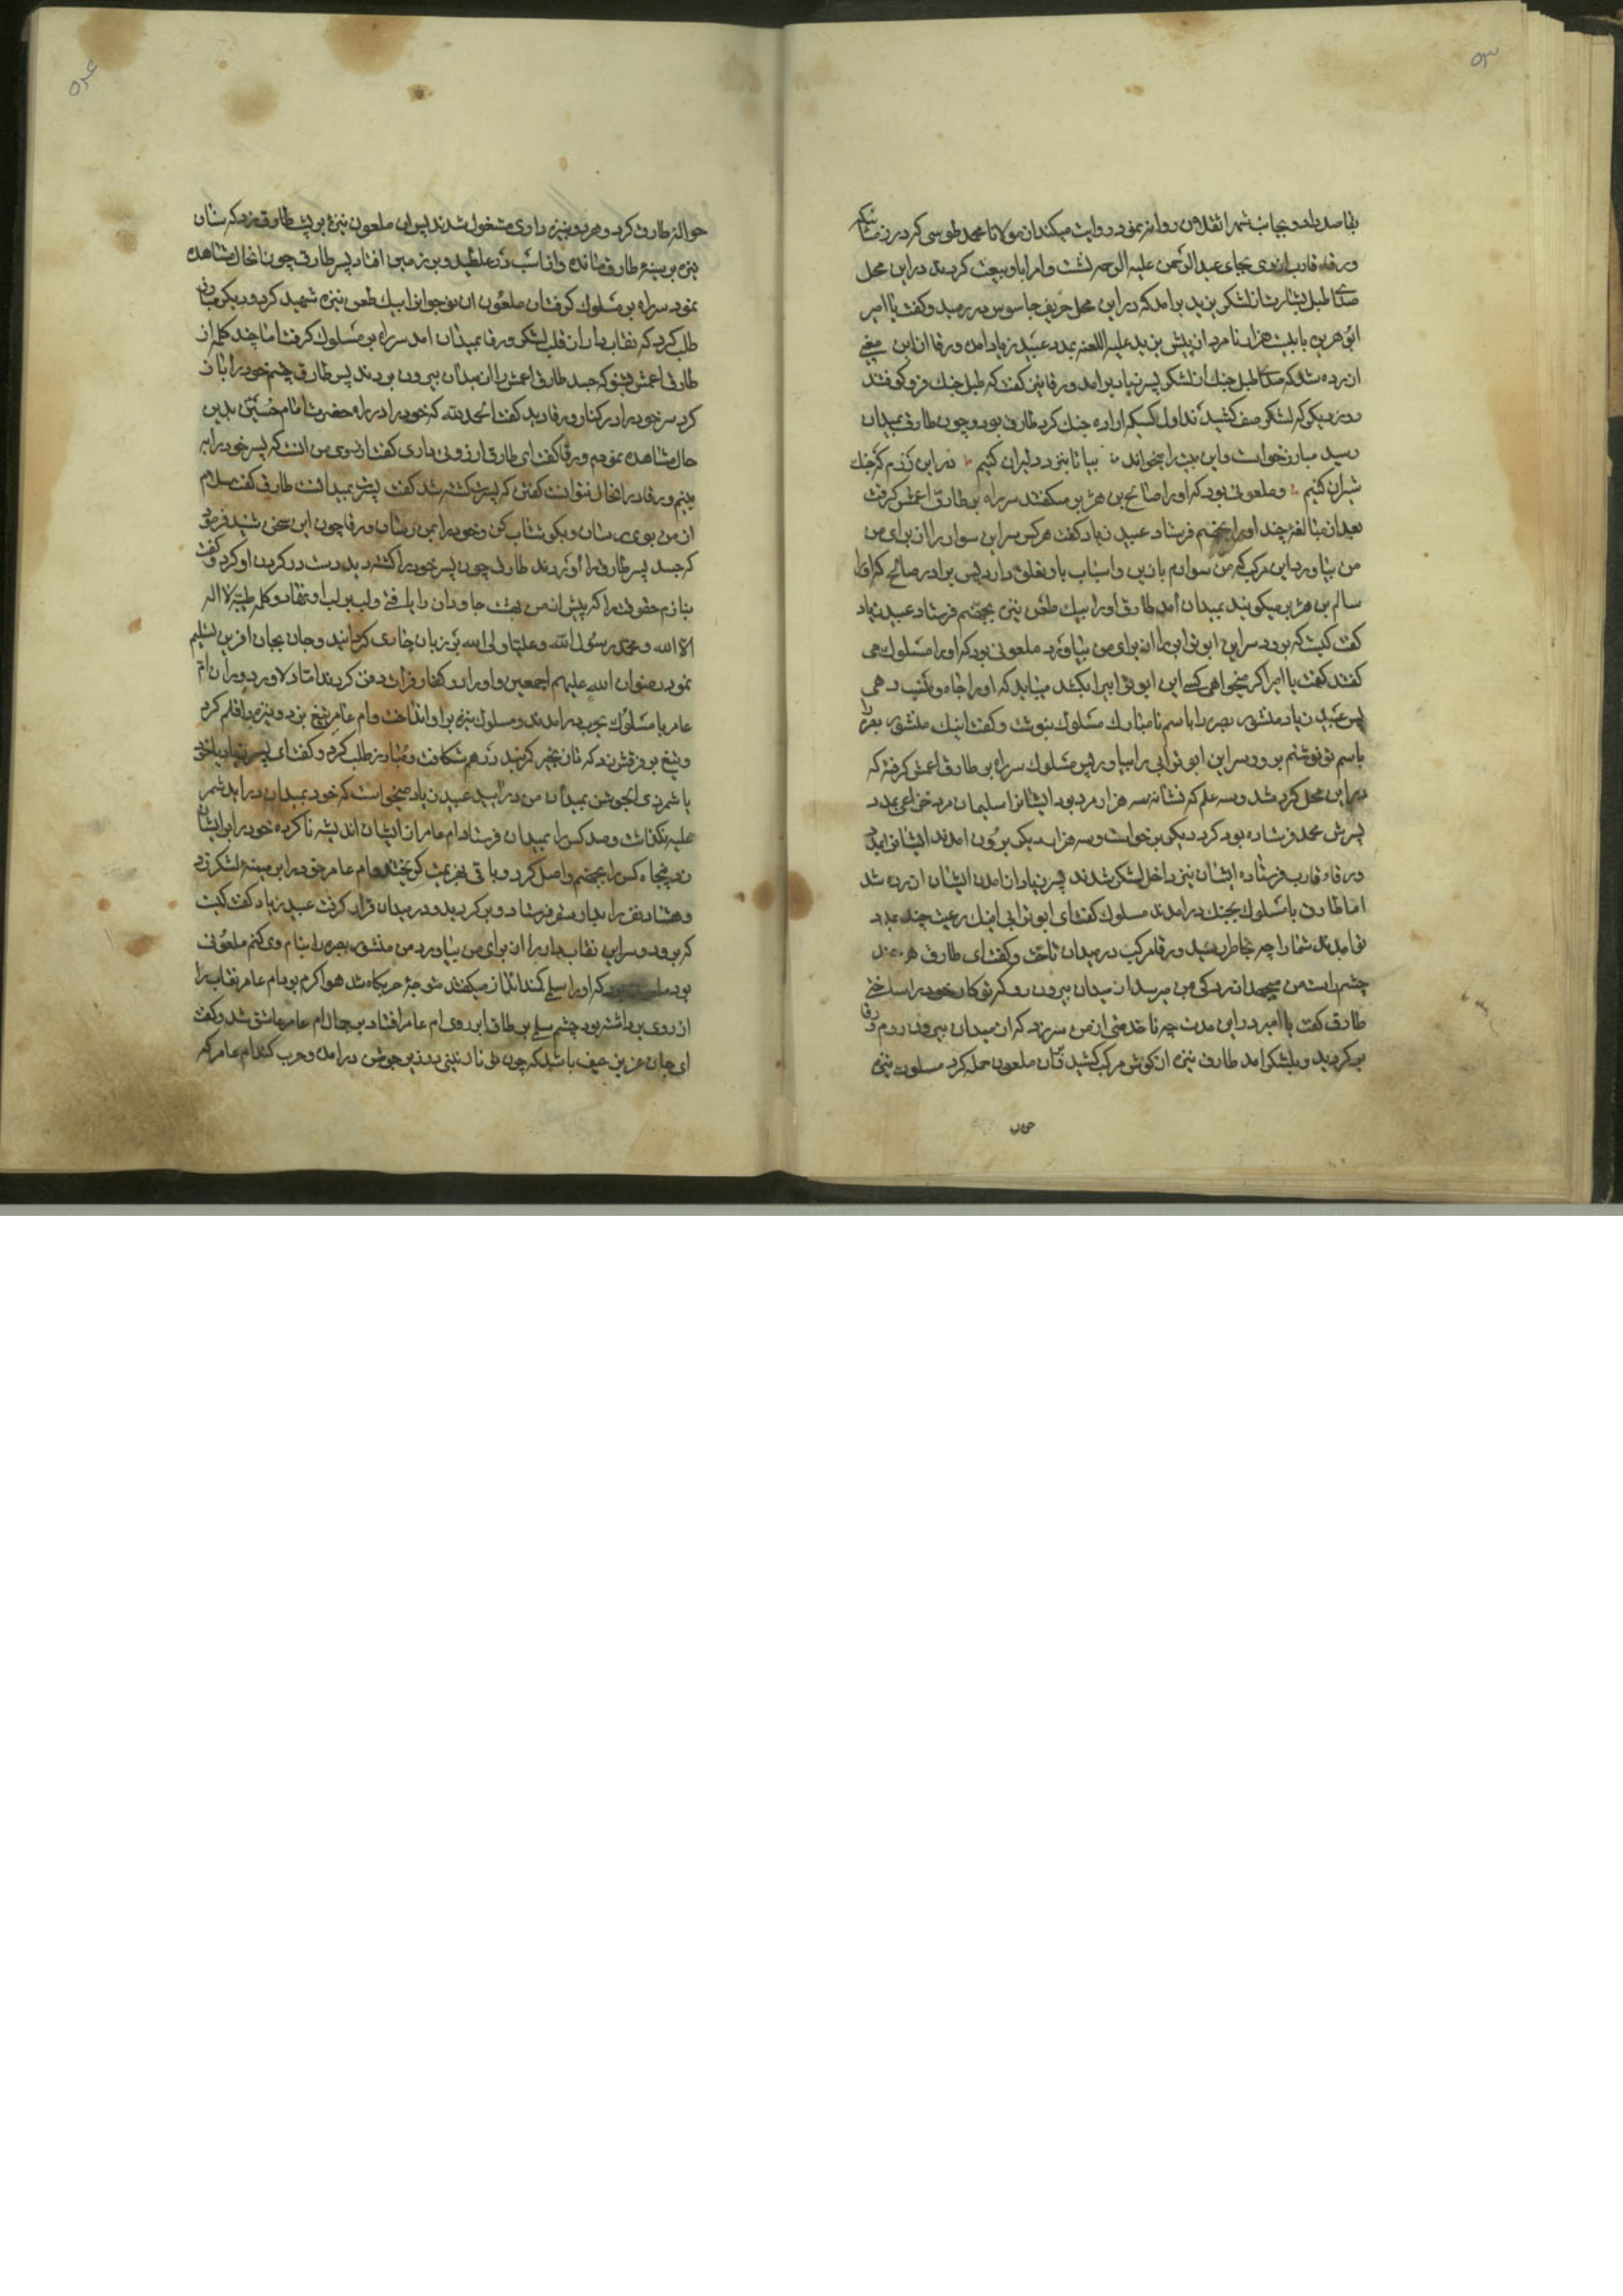 ۵۳
بقاصد داد و بجانب شهر انقلابن روانه نمود و روایت میکند از مولانا محمد طوسی که در زمستانیکه
ورقاء قارب از وی بجای عبدالرحمن علیه الرحمه نشست و امرا با و بیعت کردند در این محل
صدای طبل بشارت از لشکر یزید برامد که در این محل حریف جاسوس در رسید و گفت یا امیر
ابو هریره با بیست هزار نامرد از پیش یزید علیه اللعنه بمدد عبید زیاد امده ورقا از این معنی
ازرده شد که صدای طبل جنك از لشکر پسر زیاد برامد ورقا نیز گفت که طبل جنك فرو کوفتند
روز دیگر که لشکر صف کشیدند اول کسیکه اراده جنك کرد طارق بود و چون طارق بمیدان
رسید مبارز خواست و این بیت را میخواند بیا تا نبرد دلیران کنیم در این رزم که جنك
شیران کنیم و ملعونی بود که او را صالح بن هزبر میکفتند سر راه بر طارق اعمش گرفت
بعد از مبالغه چند او را بجهنم فرستاد عبید زیاد گفت هر کس سر این سوار را از برای من
من بیاورد این مرکب که من سوارم با زین و اسباب باو تعلق دارد پس برادر صالح که او را
سالم بن هزبر میکویند بمیدان امد طارق او را بیك طعن نیزه بجهنم فرستاد عبید زیاد
گفت کیست که برود سر این ابو ترابی را از برای من بیاورد ملعونی بود که او را مسلوك می
کفتند کفت یا امیر اگر میخواهی کسی این ابو ترابی را بکشد میباید که او را جاه و منصب دهی
پس عبید زیاد منشور بصره را باسم نامبارك مسلوك بنوشت و گفت اینك منشور بصره را
باسم تو نوشتم برو و سر این ابو ترابی را بیاور پس مسلوك سر راه بر طارق اعمش گرفته که
در این محل کرد شد و سه علم که نشانه سه هزار مرد بود ایشانرا سلیمان صرد خزاعی بمدد
پسرش محمد فرستاده بود کرد دیگر برخواست و سه هزار دیگر برون امدند ایشانرا بمدد
ورقاء قارب فرستاده ایشان نیز داخل لشکر شدند پسر زیاد از امدن ایشان ازرده شد
اما طارق با مسلوك بجنك درامدند مسلوك گفت ای ابو ترابی اینك رعیت چند بمدد
تو امدند شما را چه بخاطر رسید ورقا مرکب در میدان تاخت و گفت ای طارق هر چند
چشم راست من میجهد از زدکی من میرسد از میدان بیرون رو که تو کار خود را ساختی
طارق گفت یا امیر در این مدت چه ناخدمتی از من سر زد که از میدان بیرون روم ورقا
بر کردید و بلشکر امد طارق نیزه از کوش مرکب کشید بر ان ملعون حمله کرد مسلوك نیزه
۵۴
حواله طارق کرد و هر دو بنیزه داری مشغول شدند پس ان ملعون نیزه بر پشت طارق زد که سنان
نیزه بر سینه طارق مانده و از اسب در غلطید و بر زمین افتاد پسر طارق چون انحال مشاهده
نمود سر راه بر مسلوك گرفت ان ملعون ان نوجوانرا بیك طعن نیزه شهید کرد و دیگر مبارز
طلب کرد که نقاب دار از قلب لشکر ورقا بمیدان امد سر راه بر مسلوك گرفت اما چند کلمه از
طارق اعمش بشنو که جسد طارق اعمش را از میدان بیرون بردند پس طارق چشم خود را باز
کرد سر خود را در کنار ورقا دید گفت الحمد لله که خود را در راه حضرت امام حسین بدین
حال مشاهده نمودم ورقا گفت ای طارق ارزوئی داری گفت ارزوی من انست که پسر خود را به
بینم ورقا در انحال نتوانست کفتن که پسرت کشته شد گفت پسرت بمیدانست طارق گفت سلام
از من بوی رسان و بگو شتاب کن و خود را بمن رسان ورقا چون این سخن شنید فرمود
که جسد پسر طارق را اوردند طارق چون پسر خود را کشته دید دست در گردن او کرد و گفت
بنازم حقوقت را که پیش از من بهشت جاودان را یافتی و لب بر لب او نهاد و کلمه طیبه لا اله
الا الله و محمد رسول الله و علیا ولی الله بر زبان جاری کردانید و جان بجان افرین تسلیم
نمود رضوان الله علیهم اجمعین و او را در کنار فرات دفن کردند اما دلاور دوران ام
عامر با مسلوك بحرب درامدند و مسلوك نیزه بر او انداخت و ام عامر تیغ بزد و نیزه را قلم کرد
و تیغ بر فرقش زد که تا زنجیر کمربند در هم شکافت و مبارز طلب کرد و گفت ای پسر زیاد یا خود
یا شمر ذی الجوشن بمیدان من درائید عبید زیاد میخواست که خود بمیدان دراید شمر
علیه نگذاشت و صد کس را بمیدان فرستاد ام عامر از ایشان اندیشه ناکرده خود را بر ایشان
زد پنجاه کس را بجهنم واصل کرد و باقی بهزیمت کریختند و ام عامر خود را بر میمنه لشکر زد
و هشتاد نفر را بدار سقر فرستاد و بر کردید و در میدان قرار گرفت عبید زیاد گفت کیست
که برود و سر این نقاب دار را از برای من بیاورد من منشور بصره را بنام وی کنم ملعونی
بود که او را سلم کمند انداز میکفتند متوجه حربگاه شد هوا گرم بود ام عامر نقاب را
از روی برداشته بود چشم سلم بر طاق ابروی ام عامر افتاد بر جمال ام عامر عاشق شد و گفت
ای جان عزیز من حیف باشد که چون تو نازنینی بدین جوش درامده و حرب کند ام عامر که